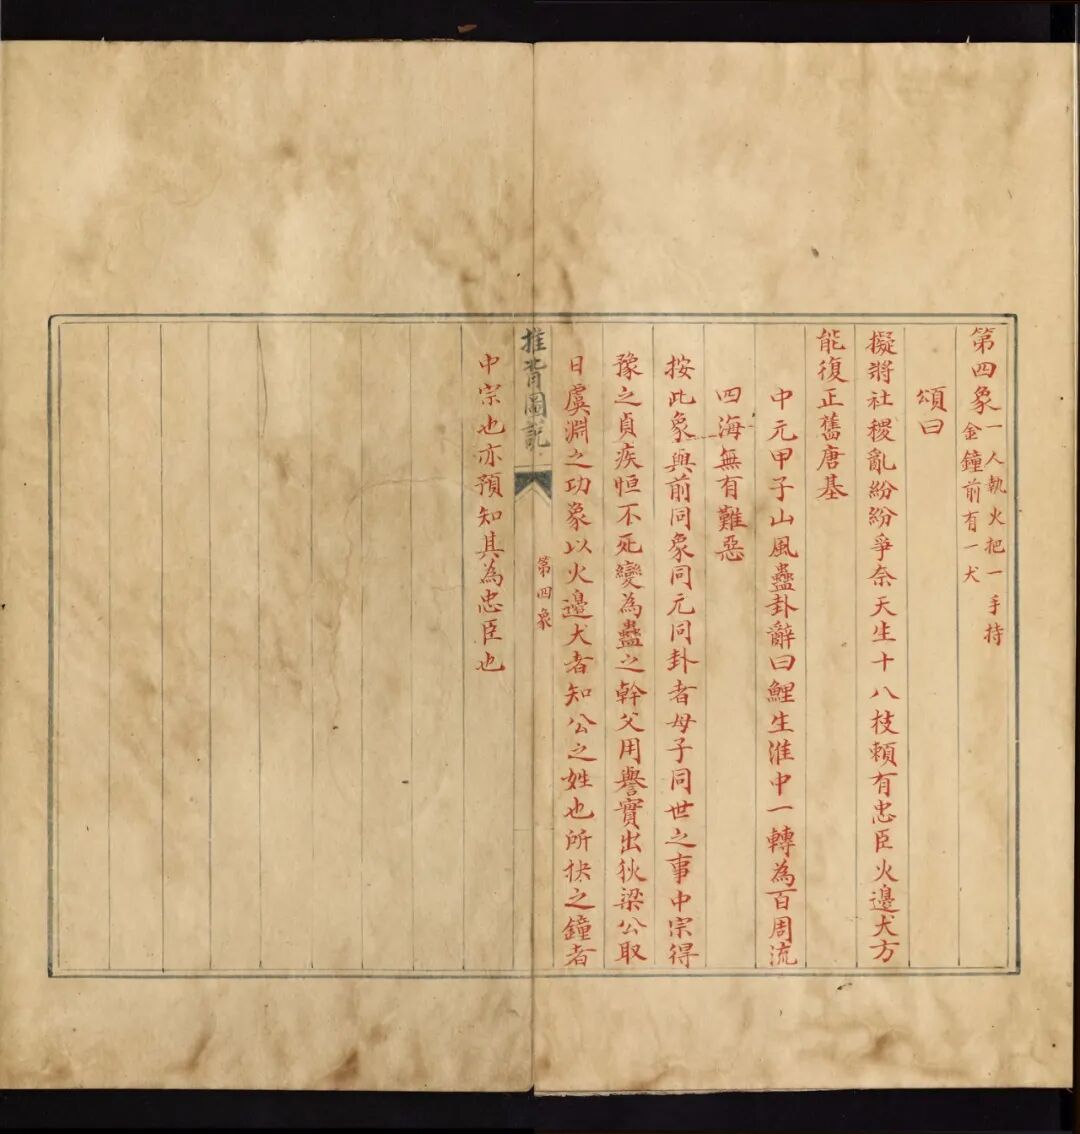 第四象一人執火把一手持
金鐘前有一犬
頌曰
擬將社稷亂紛紛爭奈天生十八枝賴有忠臣火邊犬方
能復正舊唐基
中元甲子山風蠱卦辭曰鯉生淮中一轉為百周流
四海無有難惡
按此象與前同象同元同卦者母子同世之事中宗得
豫之貞疾恒不死變為蠱之幹父用譽實出狄梁公取
日虞淵之功象以火邊犬者知公之姓也所抉之鐘者
推背圖說
第四象
中宗也亦預知其為忠臣也